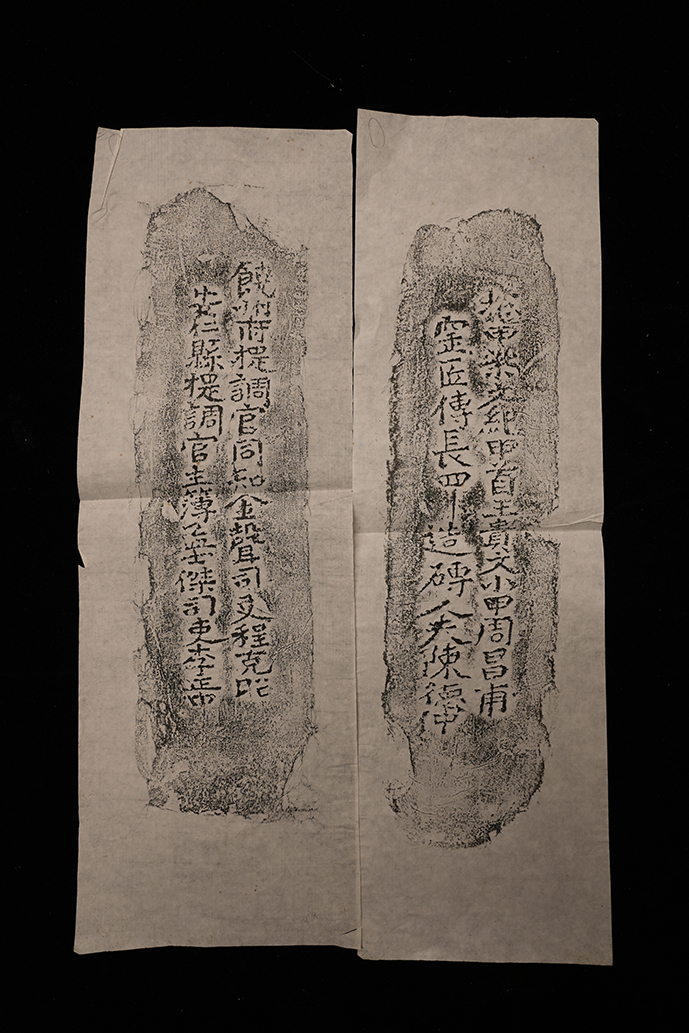 總甲柴文甲首王貴文小甲周昌甫
窑匠傅長四造磚人夫陳德仲
饒州府提調官同知金聲司吏程克昭
安仁縣提調官主簿傑司吏李